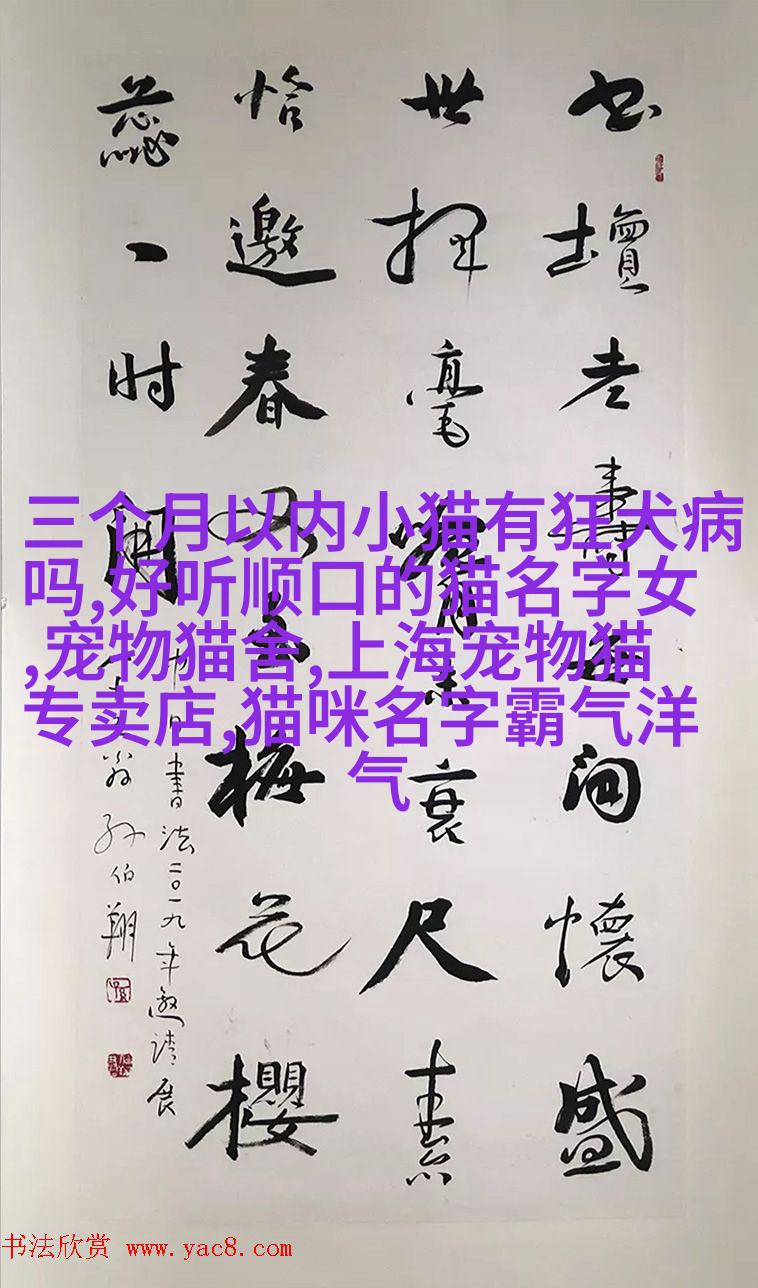 书壇老壽
间懷盛
世挥毫
未衰尺素
恰邀春
梅花櫻
蕊一时開
書法二〇一九年邀请展
翁孙伯翔
三个月以内小猫有狂犬病
吗,好听顺口的猫名字女
,宠物猫舍,上海宠物猫
专卖店,猫咪名字霸气洋
气
书法欣赏 www.yac8.com